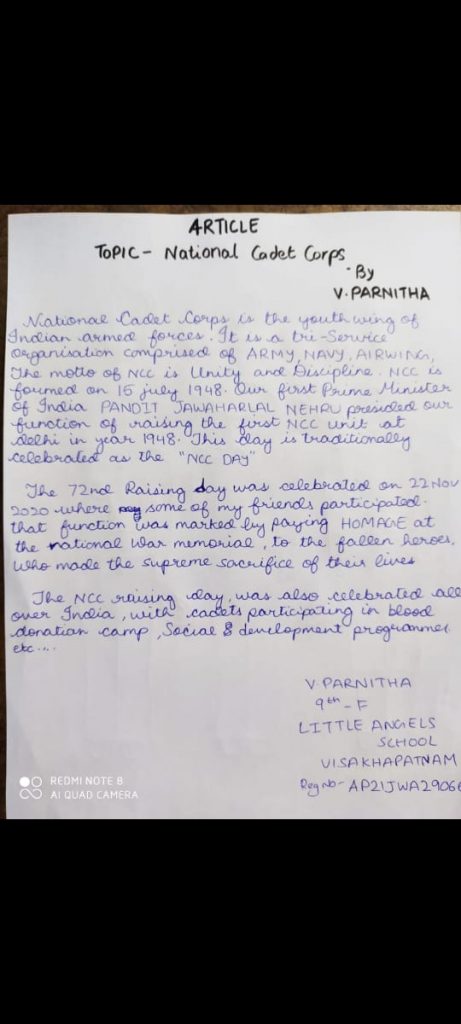 ARTICLE
TOPIC - National Cadet Corps
- By
V. PARNITHA
National Cadet Corps is the youth wing of
Indian armed forces. It is a tri-Service
organisation comprised of ARMY, NAVY, AIRWING,
The motto of NCC is Unity and Discipline. NCC is
foumed on 15 july 1948. Our first Prime Minister
of India PANDIT JAWAHARLAL NEHRU presided our
function of raising the first NCC unit at
delhi in year 1948. This day is traditionally
celebrated as the "NCC DAY"
The 72nd Raising day was celebrated on 22 NOV
2020 where some of my friends participated.
that function was marked by paying HOMAGE at
the national War memorial, to the fallen heroes,
who made the supreme sacrifice of their lives
The NCC raising day, was also celebrated all
over India, with cadets participating in blood
donation camp, Social & development programmes
etc....
V PARNITHA
9th - F
LITTLE ANGELS
SCHOOL
VISAKHAPATNAM
Reg No - AP21JWA2906
REDMI NOTE 8
AI QUAD CAMERA